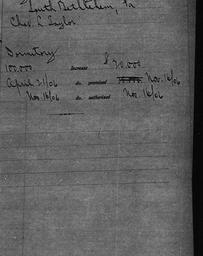 South Bethlehem, Pa
Chas. L. Taylor
Dormitory
100,000 Increase $ 20,000
April 21/06 do. promised Nov. 16/06
Nov. 16/06 do. authorized Nov. 16/06